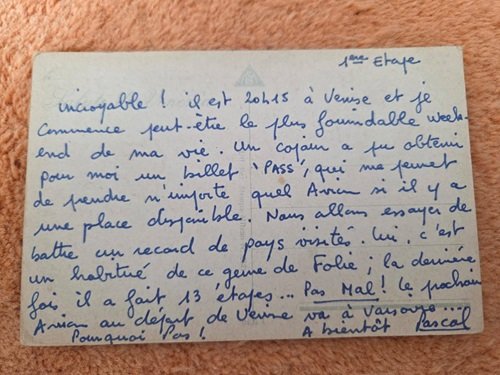 1ère Etape
incroyable ! il est 20h15 à Venise et je
commence peut-être le plus formidable week-
end de ma vie. Un copain a pu obtenir
pour moi un billet 'PASS', qui me permet
de prendre n'importe quel Avion si il y a
une place disponible. Nous allons essayer de
battre un record de pays visités. lui, c'est
un habitué de ce genre de Folie ; la dernière
fois il a fait 13 étapes... Pas Mal ! le prochain
Avion au départ de Venise va à Varsovie...
Pourquoi Pas ! A bientôt Pascal